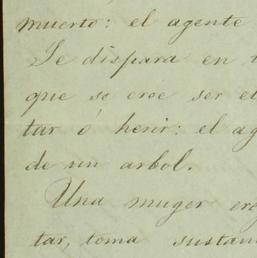 muerto: el agente
Se dispara en
que se cree ser el
tar ó herir: el ag
de un arbol.
Una muger cre
tar, toma sustan